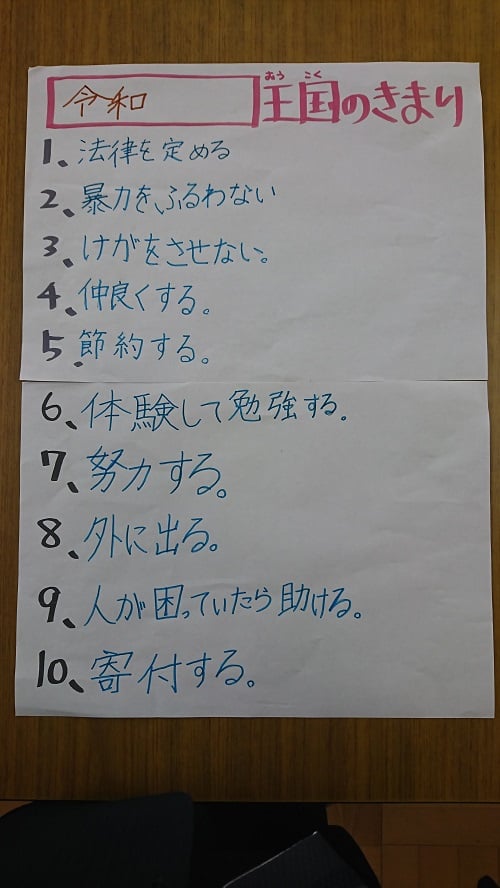 令和 王国のきまり
1、法律を定める
2、暴力を、ふるわない
3、けがをさせない。
4、仲良くする。
5、節約する。
6、体験して勉強する。
7、努力する。
8、外に出る。
9、人が困っていたら助ける。
10、寄付する。